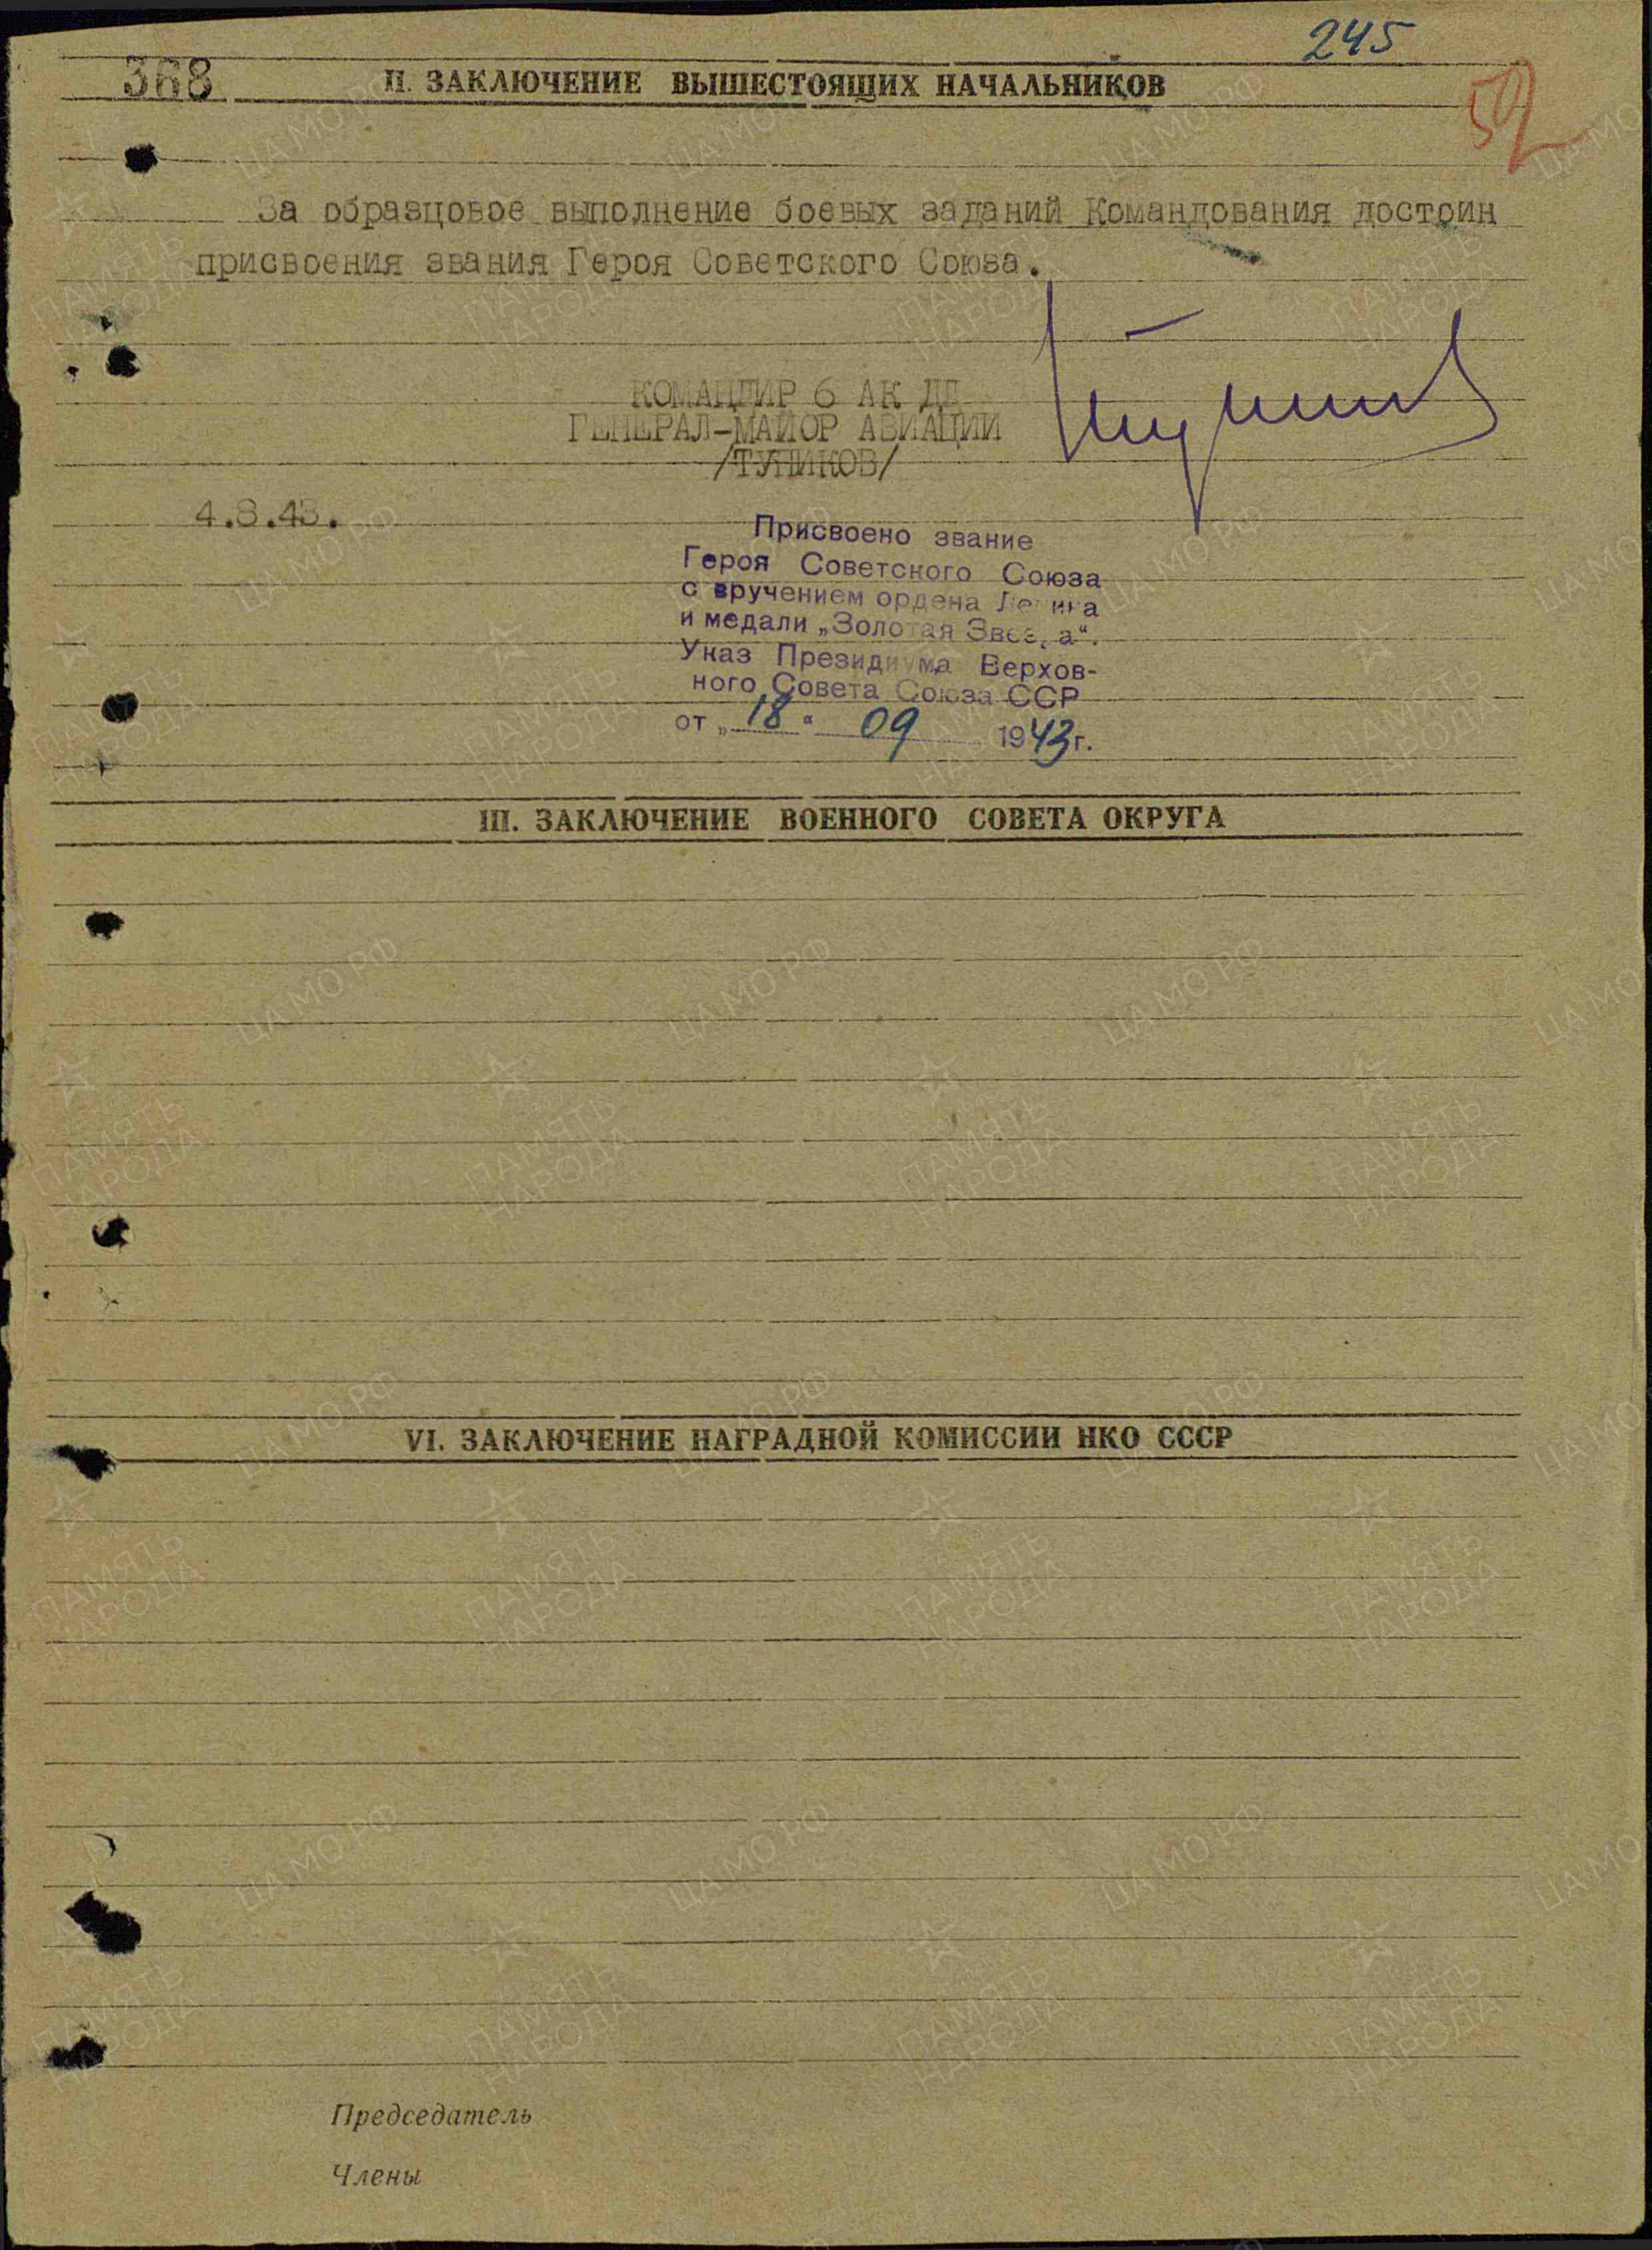 245
368
II. ЗАКЛЮЧЕНИЕ ВЫШЕСТОЯЩИХ НАЧАЛЬНИКОВ
За образцовое выполнение боевых заданий Командования достоин
присвоения звания Героя Советского Союза.
КОМАНДИР 6 АК ДД
ГЕНЕРАЛ-МАЙОР АВИАЦИИ
/ТУПИКОВ/
4.8.43.
Присвоено звание
Героя Советского Союза
с вручением ордена Ленина
и медали „Золотая Звезда“.
Указ Президиума Верхов-
ного Совета Союза ССР
от „18“ 09 1943 г.
III. ЗАКЛЮЧЕНИЕ ВОЕННОГО СОВЕТА ОКРУГА
VI. ЗАКЛЮЧЕНИЕ НАГРАДНОЙ КОМИССИИ НКО СССР
Председатель
Члены
ПАМЯТЬ
НАРОДА
ЦАМО.РФ